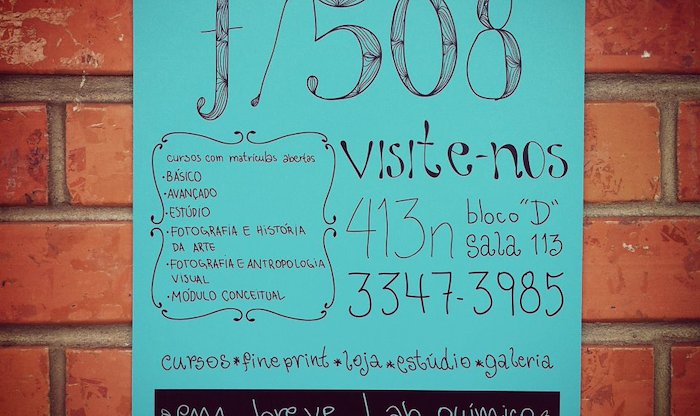 f/508
cursos com matrículas abertas
·BÁSICO
·AVANÇADO
·ESTÚDIO
·FOTOGRAFIA E HISTÓRIA
DA ARTE
·FOTOGRAFIA E ANTROPOLOGIA
VISUAL
·MÓDULO CONCEITUAL
visite-nos
413n bloco "D"
sala 113
3347-3985
cursos*fineprint*loja*estúdio*galeria
*em breve Lab químico*